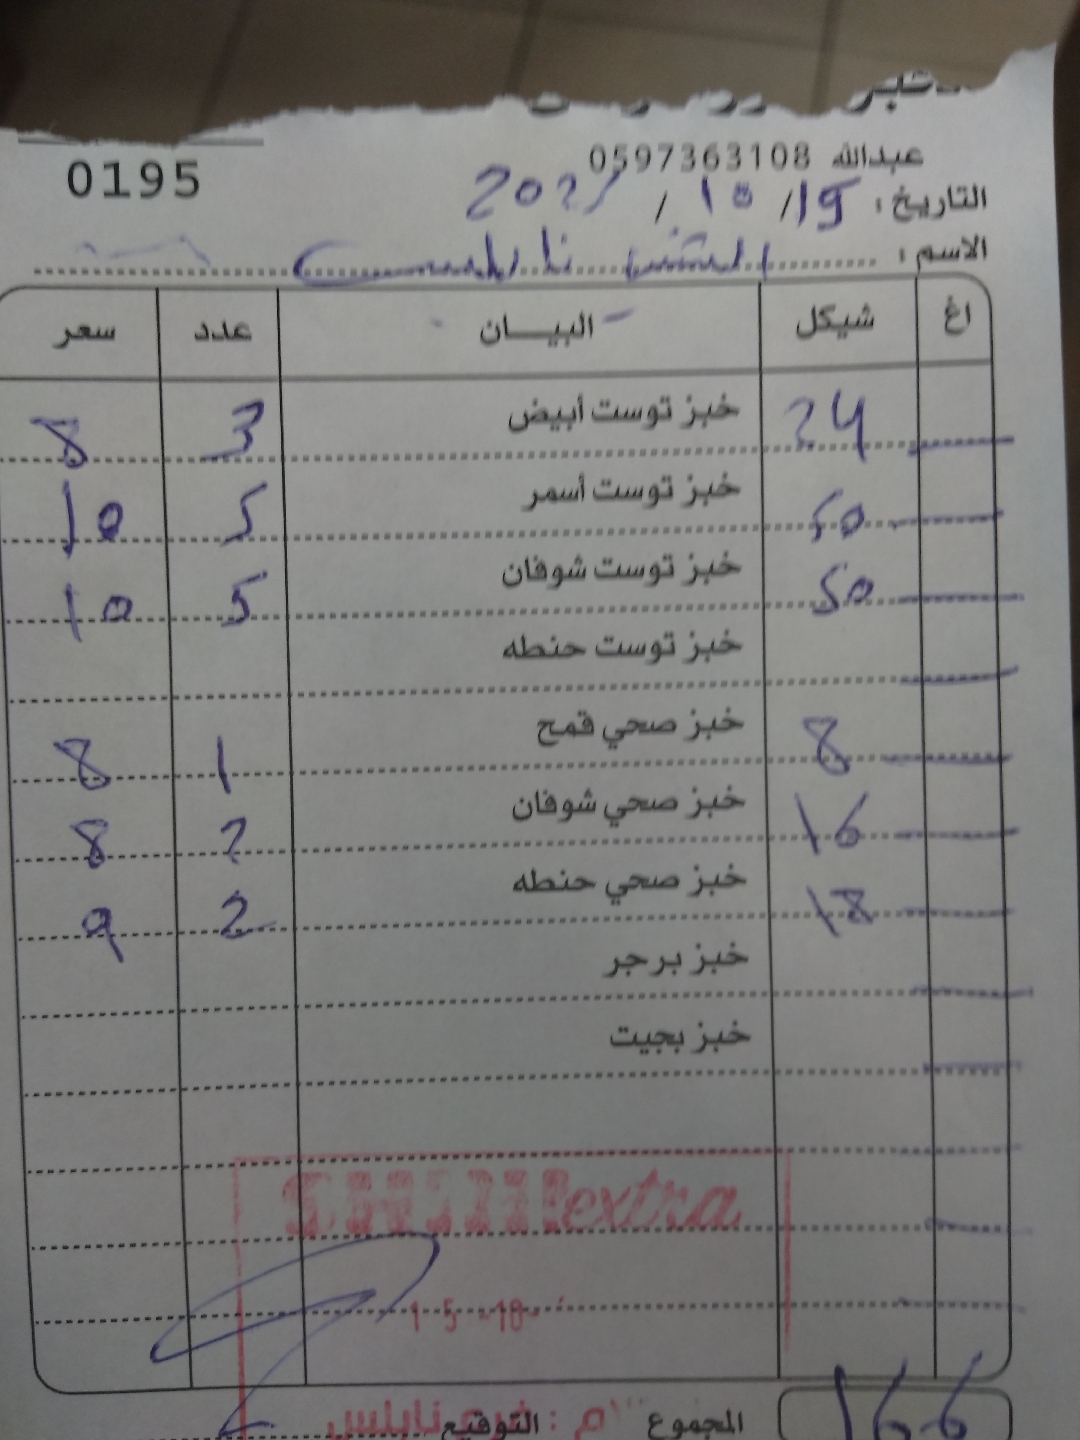 عبدالله 0597363108
0195
التاريخ: 15/ 10 / 2025
الاسم: الشني نابلس
اغ شيكل البيـــان عدد سعر
24 خبز توست أبيض 3 8
50 خبز توست أسمر 5 10
50 خبز توست شوفان 5 10
خبز توست حنطه
8 خبز صحي قمح 1 8
16 خبز صحي شوفان 2 8
18 خبز صحي حنطه 2 9
خبز برجر
خبز بجيت
extra
1-5-10-
166 المجموع التوقيع
م: فرع نابلس